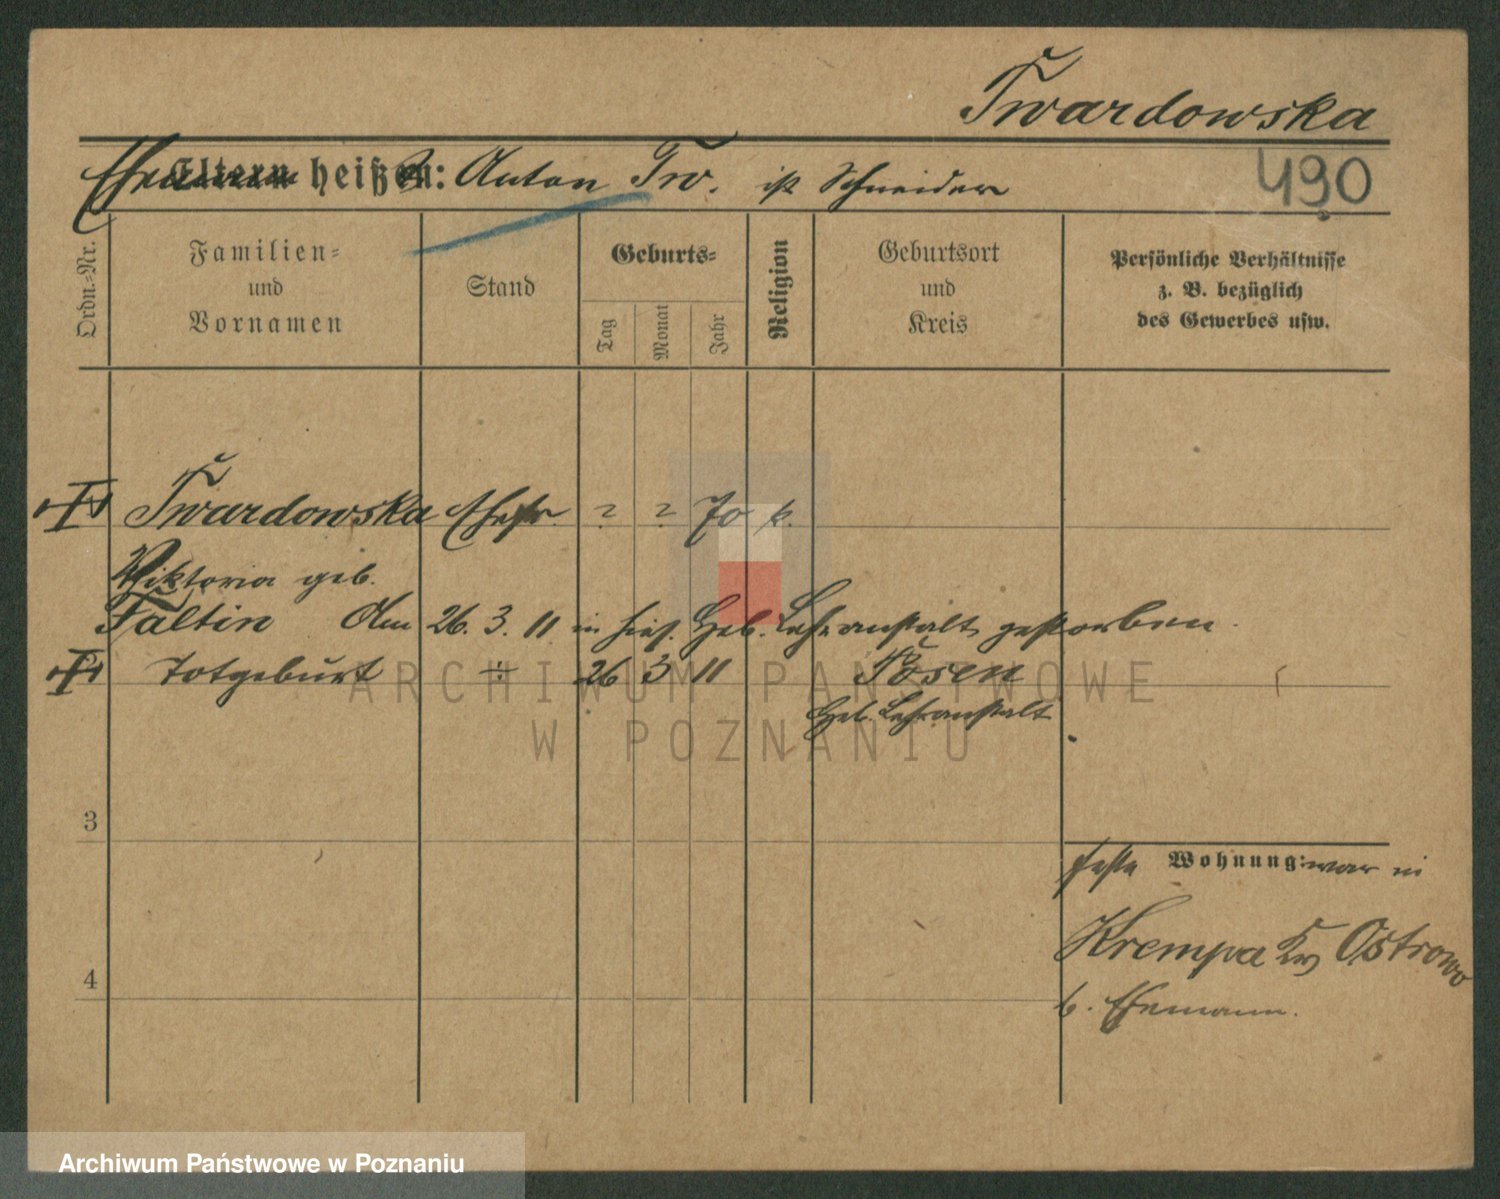 Twardowska
Ehemann heißt: Anton Tw. ist Schneider
490
Ordn.-Nr.
Familien-
und
Vornamen
Stand
Geburts-
Tag
Monat
Jahr
Religion
Geburtsort
und
Kreis
Persönliche Verhältnisse
z. B. bezüglich
des Gewerbes usw.
Twardowska Ehefr. ? ? 70 k.
Viktoria geb.
Faltin Am 26. 3. 11 in hies. Heb. Lehranstalt gestorben.
Totgeburt ÷ 26 3 11 Posen
Heb. Lehranstalt
3
feste Wohnung: war in
Krempa Kr. Ostrowo
b. Ehemann.
4
ARCHIWUM PAŃSTWOWE
W POZNANIU
Archiwum Państwowe w Poznaniu